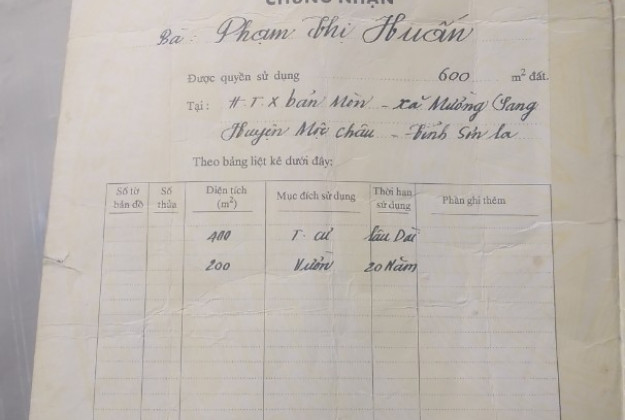 CHỨNG NHẬN
Bà: Phạm Thị Huấn
Được quyền sử dụng 600 m² đất.
Tại: H.T.X bản Mòn - xã Mường Sang
Huyện Mộc Châu - Tỉnh Sơn la
Theo bảng liệt kê dưới đây:
Số tờ bản đồ | Số thửa | Diện tích (m²) | Mục đích sử dụng | Thời hạn sử dụng | Phần ghi thêm
400 T. cư lâu Dài
200 Vườn 20 Năm